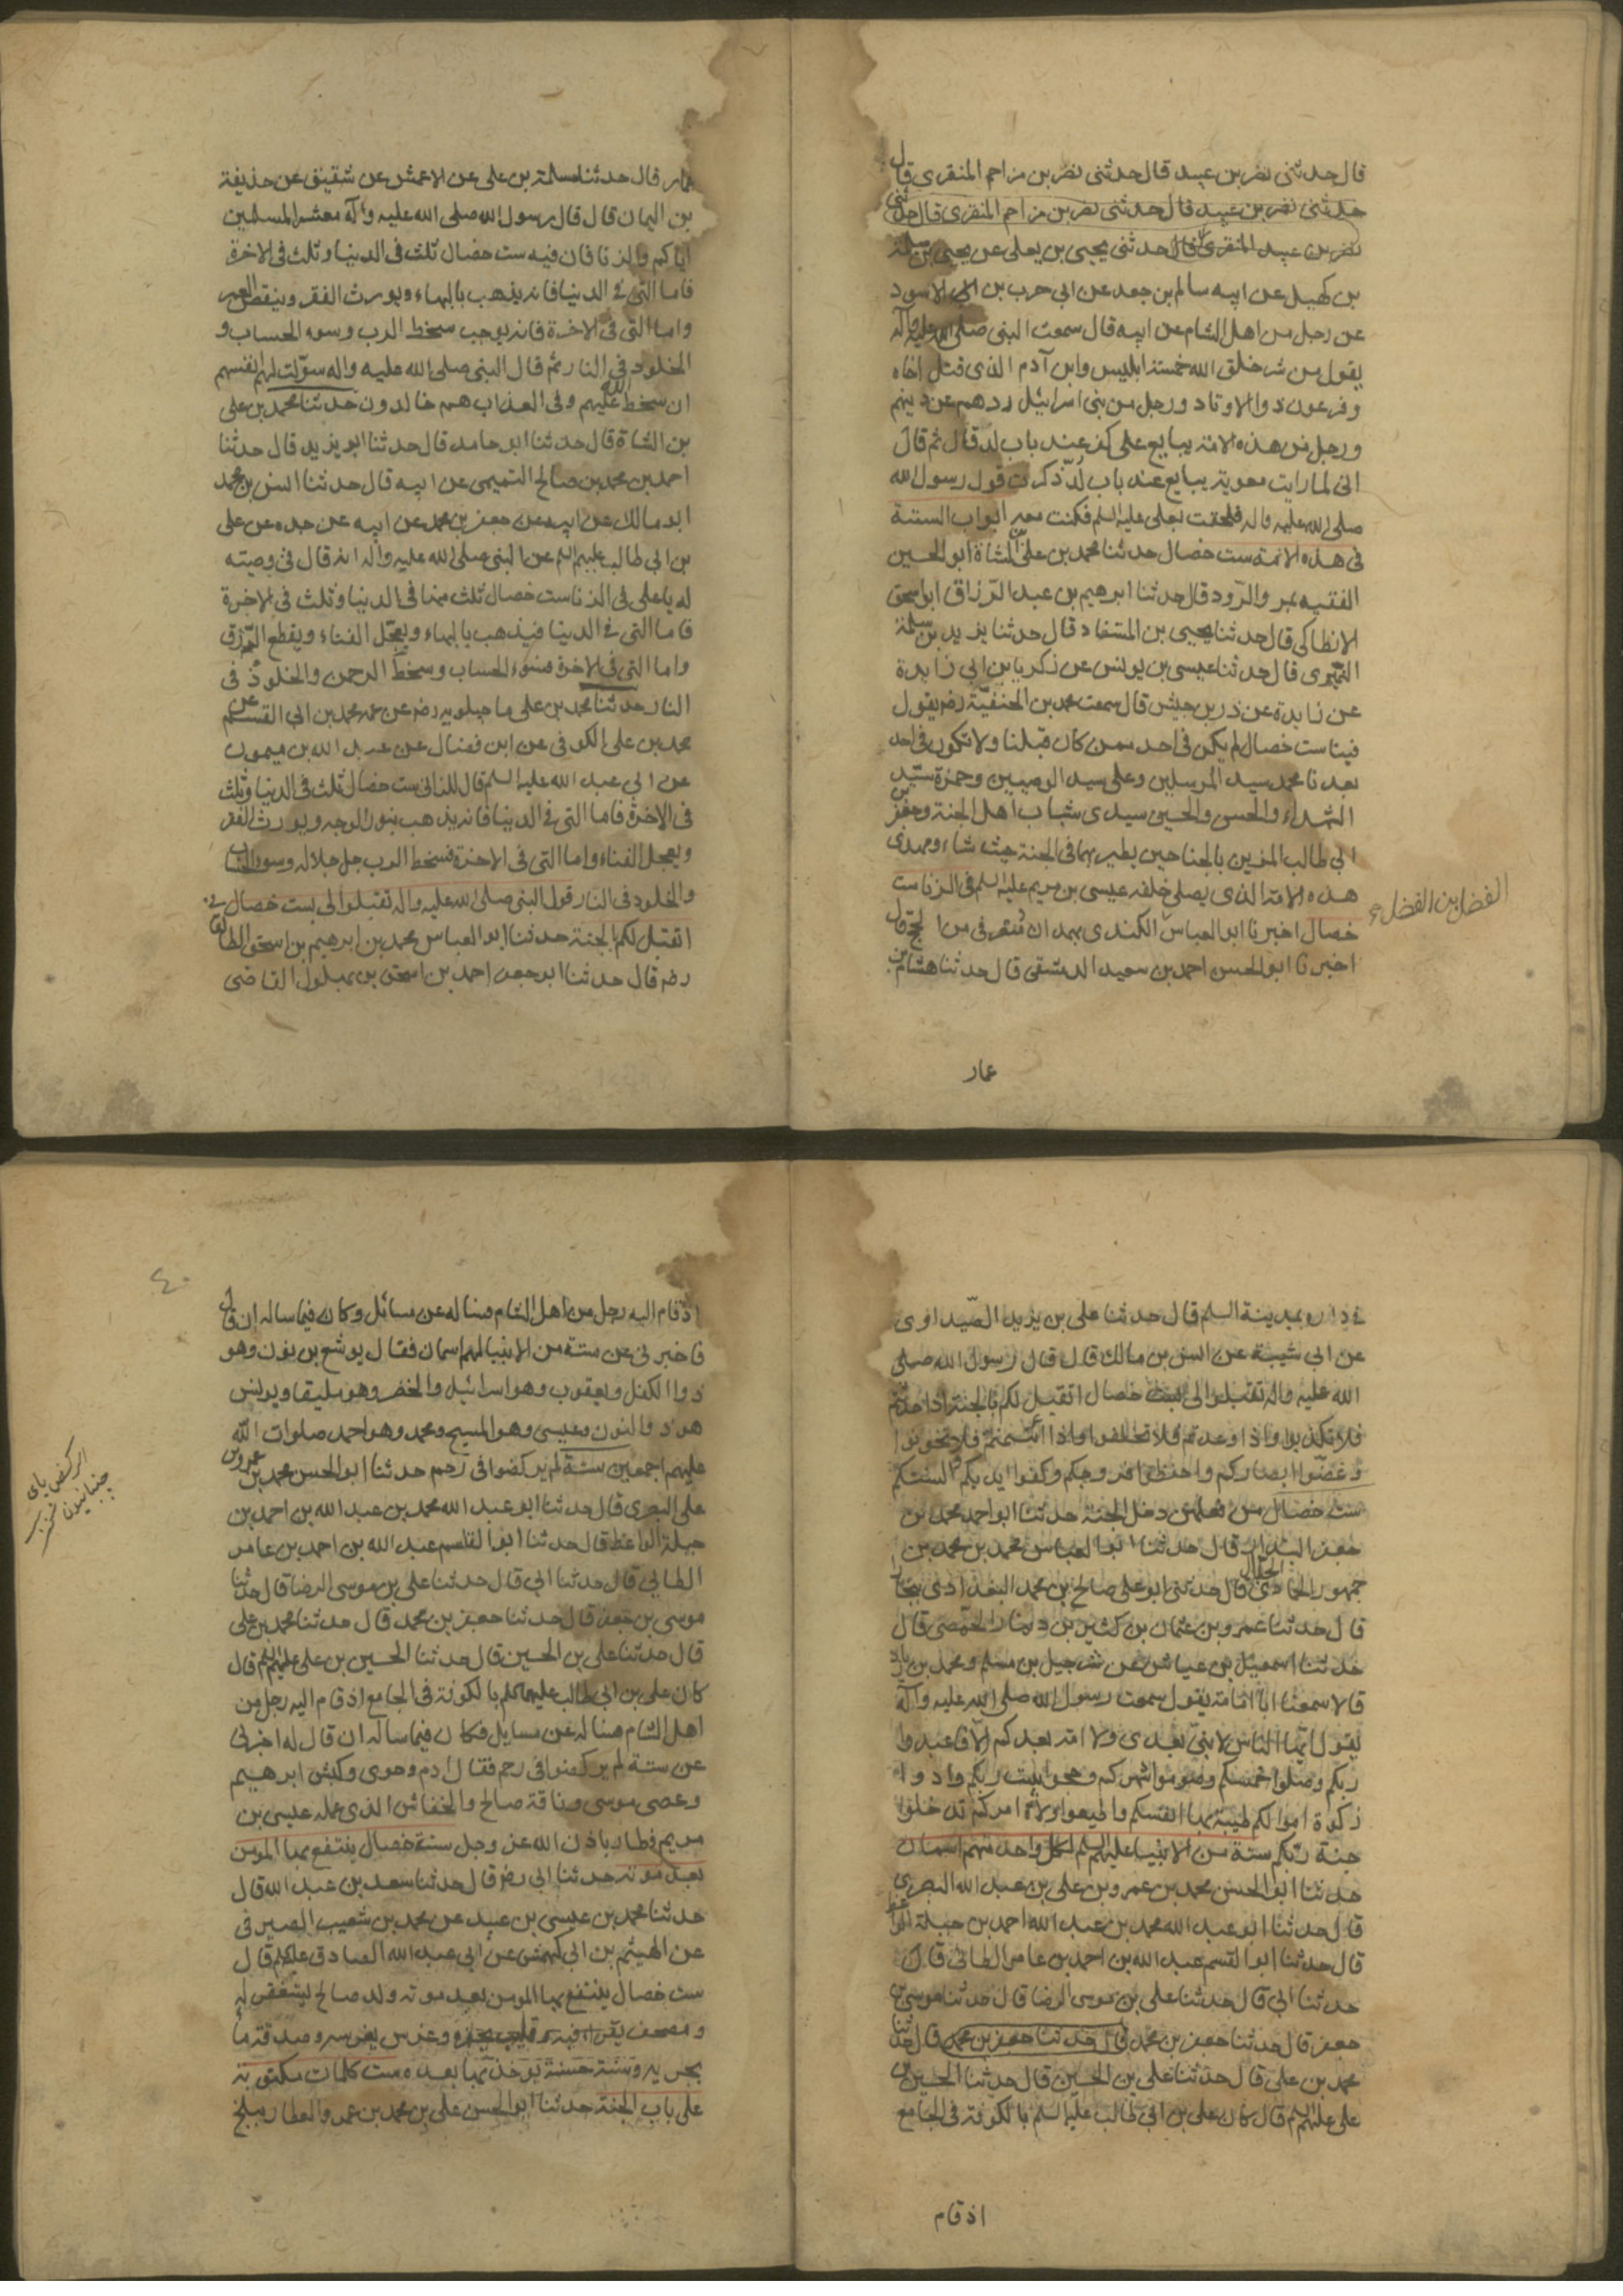 قال حدثنى نصر بن عبيد قال حدثنى نصر بن مزاحم المنقرى قال
حدثنى نصر بن عبيد قال حدثنى نصر بن مزاحم المنقرى قال حدثنى
نصر بن عبيد المنقرى قال حدثنى يحيى بن يعلى عن يحيى بن سلمة
بن كهيل عن ابيه سالم بن جعد عن ابى حرب بن ابى الاسود
عن رجل من اهل الشام عن ابيه قال سمعت النبى صلى الله عليه وآله
يقول من شر خلق الله خمسة ابليس وابن آدم الذى قتل اخاه
وفرعون ذوالاوتاد ورجل من بنى اسرائيل ردهم عن دينهم
ورجل من هذه الامة يبايع على كفر عند باب لد قال ثم قال
انى لما رايت معوية يبايع عند باب لد ذكرت قول رسول الله
صلى الله عليه واله فلحقت بعلى عليه السلم فكنت معه ابواب الستة
فى هذه الامة ست خصال حدثنا محمد بن على الشاة ابو الحسين
الفقيه بمرو الرود قال حدثنا ابرهيم بن عبد الرزاق ابو اسحق
الانطاكى قال حدثنا يحيى بن المستفاد قال حدثنا يزيد بن سلمة
النميرى قال حدثنا عيسى بن يونس عن زكريا بن ابى زايدة
عن زايدة عن ذر بن حبيش قال سمعت محمد بن الحنفية رضه يقول
فينا ست خصال لم يكن فى احد ممن كان قبلنا ولا تكون فى احد
بعدنا محمد سيد المرسلين وعلى سيد الوصيين وحمزة سيد
الشهداء والحسن والحسين سيدى شباب اهل الجنة وجعفر بن
ابى طالب المزين بالجناحين يطير بهما فى الجنة حيث شاء ومهدى
هذه الامة الذى يصلى خلفه عيسى بن مريم عليه السلم فى الزنا ست
الفضل بن الفضل
خصال اخبرنا ابو العباس الكندى بهمدان منصرفى من الحج قال
اخبرنا ابو الحسن احمد بن سعيد الدمشقى قال حدثنا هشام بن
عمار
عمار قال حدثنا مسلمة بن على عن الاعمش عن شقيق عن حذيفة
بن اليمان قال قال رسول الله صلى الله عليه وآله معشر المسلمين
اياكم والزنا فان فيه ست خصال ثلث فى الدنيا وثلث فى الاخرة
فاما التى فى الدنيا فانه يذهب بالبهاء ويورث الفقر وينقص العمر
واما التى فى الاخرة فانه يوجب سخط الرب وسوء الحساب و
الخلود فى النار ثم قال النبى صلى الله عليه واله سولت لهم انفسهم
ان سخط الله عليهم وفى العذاب هم خالدون حدثنا محمد بن على
بن الشاة قال حدثنا ابو حامد قال حدثنا ابو يزيد قال حدثنا
احمد بن محمد بن صالح التميمى عن ابيه قال حدثنا انس بن محمد
ابو مالك عن ابيه عن جعفر بن محمد عن ابيه عن جده عن على
بن ابى طالب عليهم السلم عن النبى صلى الله عليه واله انه قال فى وصيته
له يا على فى الزنا ست خصال ثلث منها فى الدنيا وثلث فى الاخرة
فاما التى فى الدنيا فيذهب بالبهاء ويعجل الفناء ويقطع الرزق
واما التى فى الاخرة فسوء الحساب وسخط الرحمن والخلود فى
النار حدثنا محمد بن على ماجيلويه رضه عن عمه محمد بن ابى القسم عن
محمد بن على الكوفى عن ابن فضال عن عبد الله بن ميمون
عن ابى عبد الله عليه السلم قال للزانى ست خصال ثلث فى الدنيا وثلث
فى الاخرة فاما التى فى الدنيا فانه يذهب بنور الوجه ويورث الفقر
ويعجل الفناء واما التى فى الاخرة فسخط الرب جل جلاله وسوء الحساب
والخلود فى النار قول النبى صلى الله عليه واله تقبلوا لى ست خصال
اتقبل لكم الجنة حدثنا ابو العباس محمد بن ابرهيم بن اسحق الطالقانى
رضه قال حدثنا ابو جعفر احمد بن اسحق بن بهلول القاضى
فى داره بمدينة السلم قال حدثنا على بن يزيد الصيداوى
عن ابى شيبة عن انس بن مالك قال قال رسول الله صلى
الله عليه واله تقبلوا لى ست خصال اتقبل لكم بالجنة اذا حدثتم
فلا تكذبوا واذا وعدتم فلا تخلفوا واذا ائتمنتم فلا تخونوا
وغضوا ابصاركم واحفظوا فروجكم وكفوا ايديكم والسنتكم
ست خصال من فعلهن دخل الجنة حدثنا ابو احمد محمد بن
جعفر البندار قال حدثنا ابو العباس محمد بن محمد بن
جمهور الحمادى قال حدثنى ابو على صالح بن محمد البغدادى ببخارا
قال حدثنا عمرو بن عثمان بن كثير بن دينار الحمصى قال
حدثنا اسمعيل بن عياش عن شرحبيل بن مسلم ومحمد بن زياد
قالا سمعنا ابا امامة يقول سمعت رسول الله صلى الله عليه وآله
يقول ايها الناس لا نبى بعدى ولا امة بعدكم الا فاعبدوا
ربكم وصلوا خمسكم وصوموا شهركم وحجوا بيت ربكم وادوا
زكوة اموالكم طيبة بها انفسكم واطيعوا ولاة امركم تدخلوا
جنة ربكم ستة من الانبيا عليهم السلم لكل واحد منهم اسمان
حدثنا ابو الحسن محمد بن عمرو بن على بن عبد الله البصرى
قال حدثنا ابو عبد الله محمد بن عبد الله احمد بن جبلة الواعظ
قال حدثنا ابو القسم عبد الله بن احمد بن عامر الطائى قال
حدثنا ابى قال حدثنا على بن موسى الرضا قال حدثنا موسى بن
جعفر قال حدثنا جعفر بن محمد قال حدثنا جعفر بن محمد قال حدثنا
محمد بن على قال حدثنا على بن الحسين قال حدثنا الحسين بن
على عليهم السلم قال كان على بن ابى طالب عليه السلم بالكوفة فى الجامع
اذ قام
٤٠
اذ قام اليه رجل من اهل الشام فساله عن مسائل وكان فيما ساله ان قال
فاخبرنى عن ستة من الانبيا لهم اسمان فقال يوشع بن نون وهو
ذو الكفل ويعقوب وهو اسرائيل والخضر وهو بليقا ويونس
هو ذو النون وعيسى وهو المسيح ومحمد وهو احمد صلوات الله
عليهم اجمعين ستة لم يركضوا فى رحم حدثنا ابو الحسن محمد بن عمرو بن
الركض پاى
جنبانيدن
على البصرى قال حدثنا ابو عبد الله محمد بن عبد الله بن احمد بن
جبلة الواعظ قال حدثنا ابو القاسم عبد الله بن احمد بن عامر
الطائى قال حدثنا ابى قال حدثنا على بن موسى الرضا قال حدثنا
موسى بن جعفر قال حدثنا جعفر بن محمد قال حدثنا محمد بن على
قال حدثنا على بن الحسين قال حدثنا الحسين بن على عليهم السلم قال
كان على بن ابى طالب عليهما السلم بالكوفة فى الجامع اذ قام اليه رجل من
اهل الشام فساله عن مسايل فكان فيما ساله ان قال له اخبرنى
عن ستة لم يركضوا فى رحم فقال ادم وحوى وكبش ابرهيم
وعصى موسى وناقة صالح والخفاش الذى عمله عيسى بن
مريم فطار باذن الله عز وجل ستة خصال ينتفع بها المومن
بعد موته حدثنا ابى رضه قال حدثنا سعد بن عبد الله قال
حدثنا محمد بن عيسى بن عبيد عن محمد بن شعيب الصيرفى
عن الهيثم بن ابى كهمش عن ابى عبد الله الصادق عليه السلم قال
ست خصال ينتفع بها المومن بعد موته ولد صالح يستغفر له
ومصحف يقرا فيه وقليب يحفره وغرس يغرسه وصدقة ما
يجريه وسنة حسنة يوخذ بها بعده ست كلمات مكتوبة
على باب الجنة حدثنا ابو الحسن على بن محمد بن عمرو العطار ببلخ